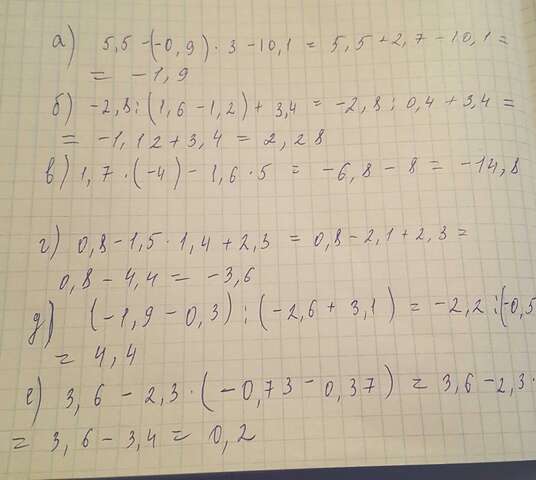 а) 5,5 -(-0,9) · 3 -10,1 = 5,5 +2,7 -10,1 =
= -1,9
б) -2,8:(1,6 -1,2) + 3,4 = -2,8 : 0,4 +3,4 =
= -1,12 +3,4 = 2,28
в) 1,7 · (-4) - 1,6 · 5 = -6,8 - 8 = -14,8
г) 0,8 -1,5 · 1,4 +2,3 = 0,8 -2,1 +2,3 =
0,8 - 4,4 = -3,6
д) (-1,9 -0,3) : (-2,6 + 3,1) = -2,2 :(-0,5
= 4,4
е) 3,6 - 2,3 · (-0,73 - 0,37) = 3,6 -2,3 ·
= 3,6 - 3,4 = 0,2